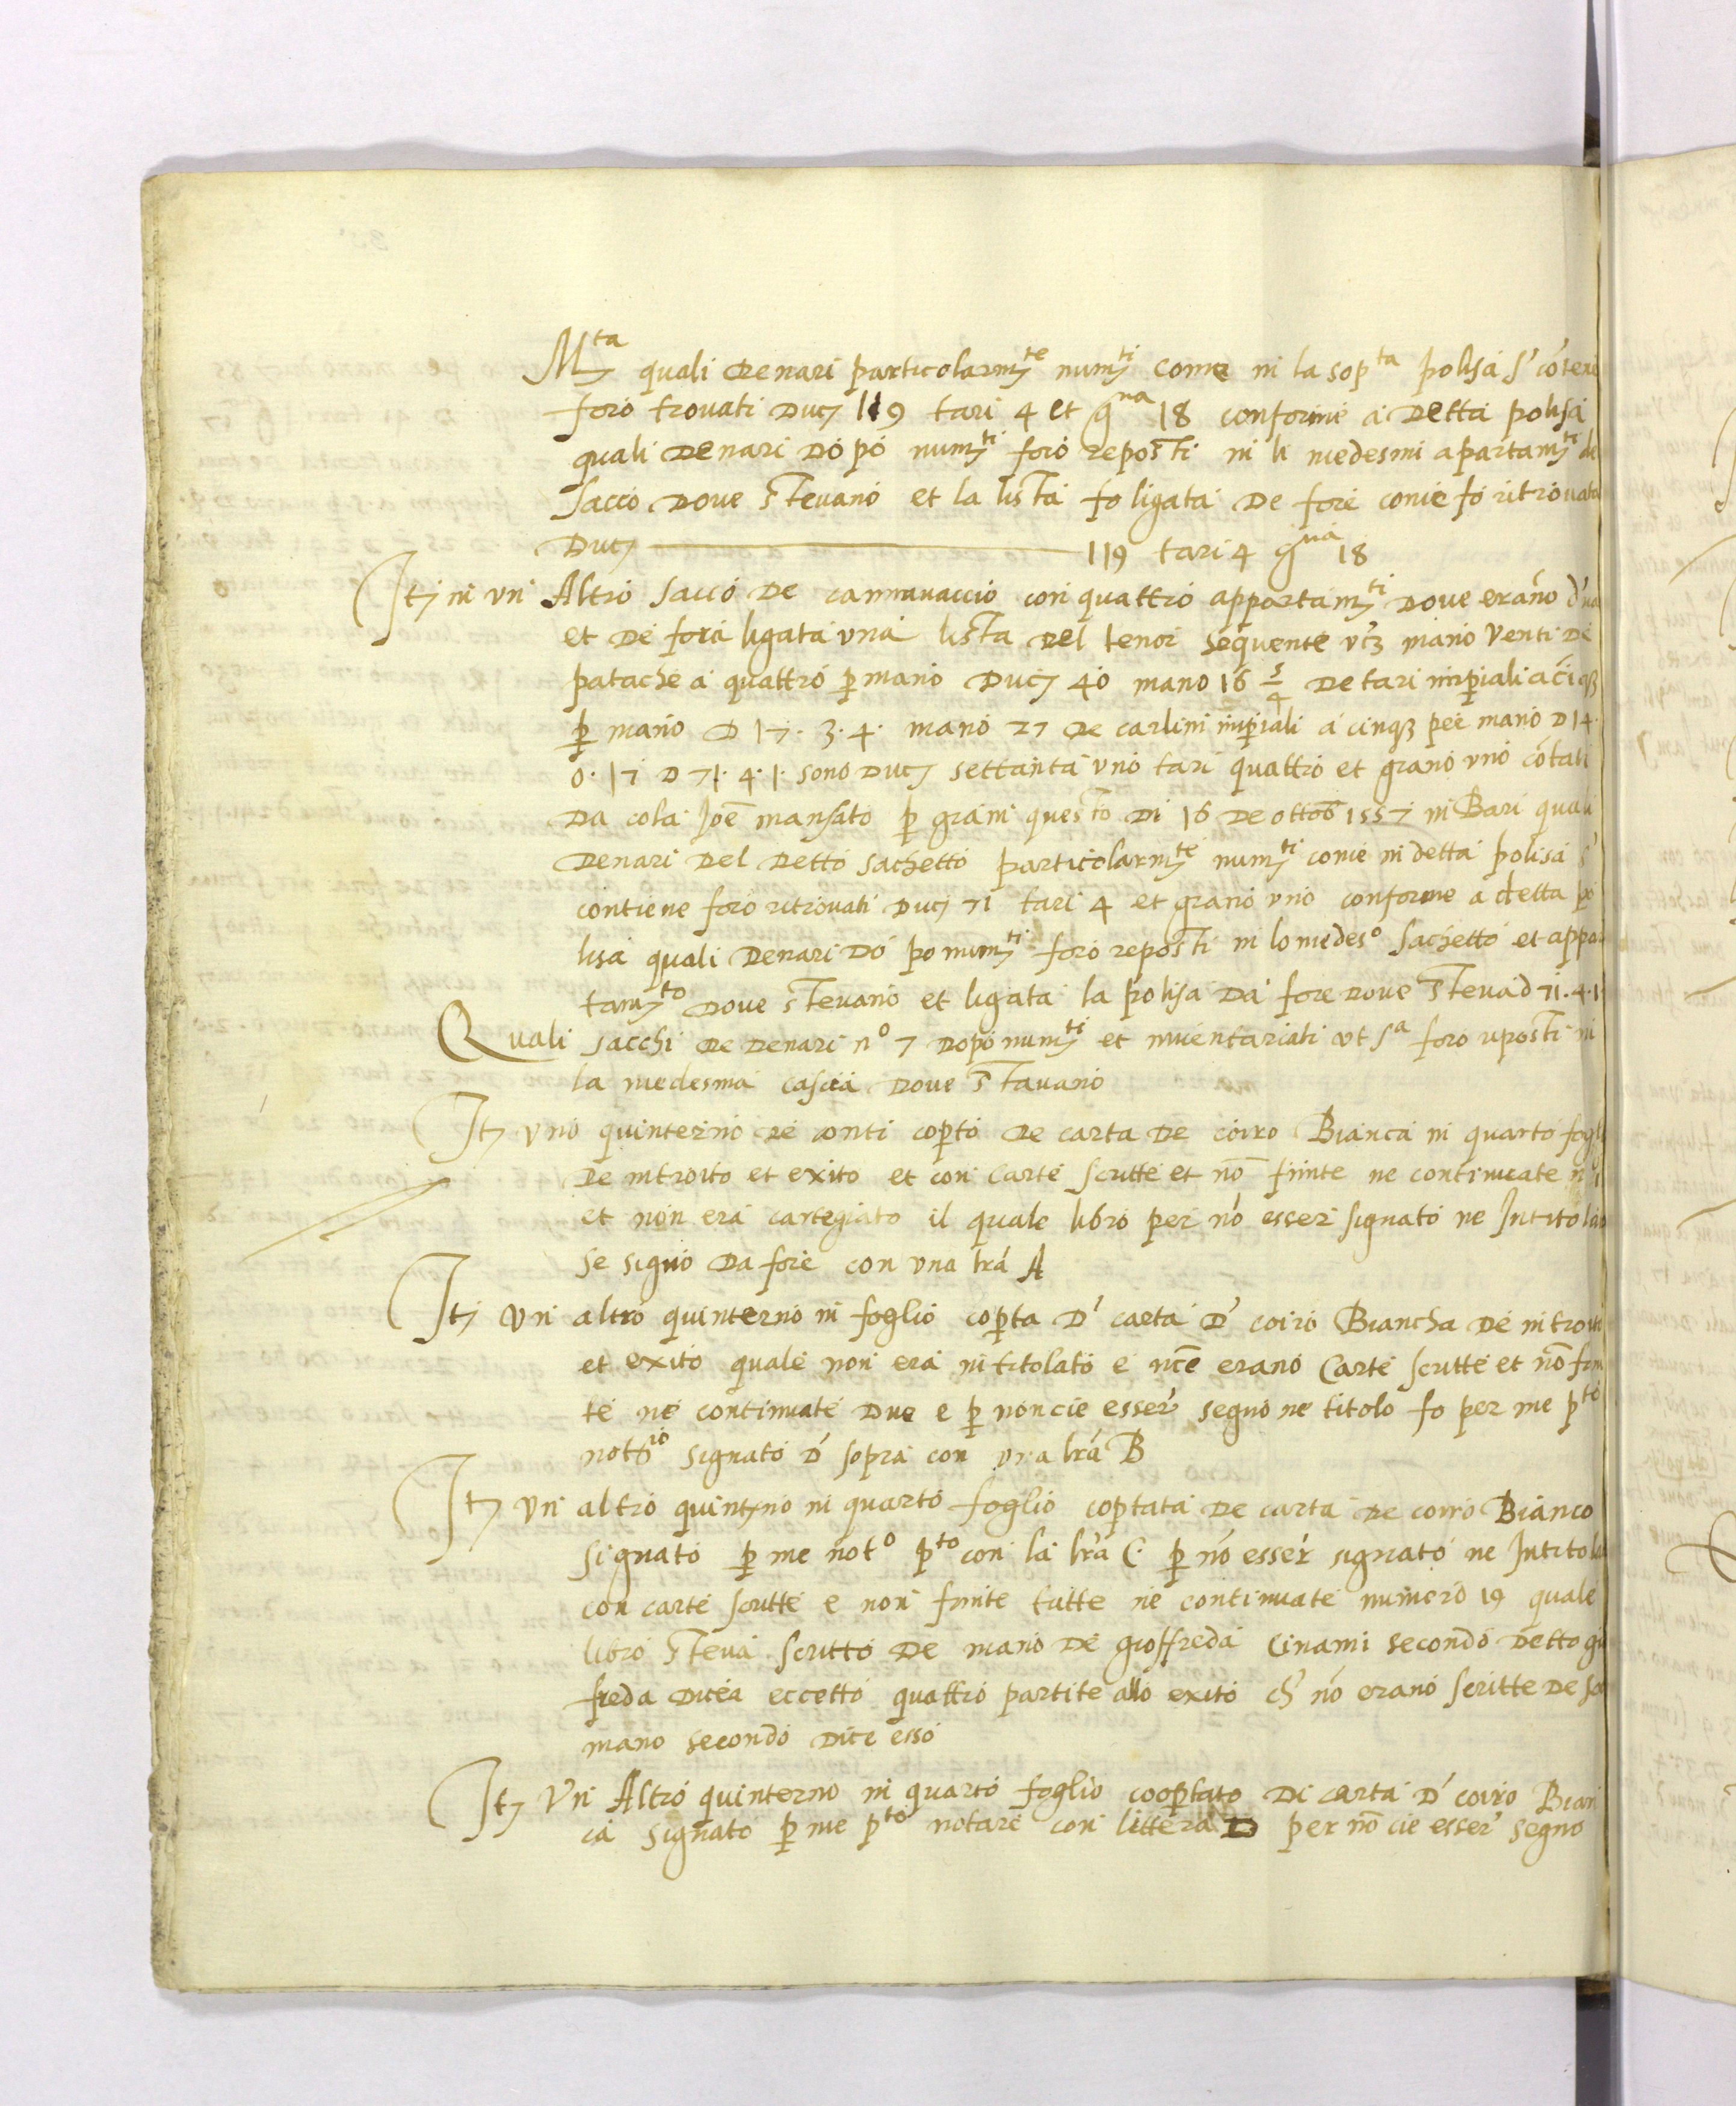 M.ta quali denari particolarm.te num.ti come in la sop.ta polisa s' cōtene
foro trovati Duc. 119 tari 4 et g.na 18 conforme a detta polisa
quali denari dopo num.ti foro reposti in li medesmi apartam.ti de
sacco dove stevano et la lista fo ligata de fore come fo ritrovata
Duc. ——— 119 tari 4 g.na 18
It. in un Altro sacco de cannavaccio con quattro appartam.ti dove erano
et de fora ligata una lista del tenor sequente vz mano venti de
patache a quattro p mano Duc. 40 mano 16 de tari imperiali a cinq3
p mano D 17. 3. 4. mano 27 de carlini imperiali a cinq3 per mano D 14.
0. 17 D 71. 4. 1. sono Duc. settanta uno tari quattro et grano uno cōtati
da cola Joe mansato p grani questo di 16 de ottob 1557 in Bari quali
denari del detto sachetto particolarm.te num.ti come in detta polisa s'
contiene foro ritrovati Duc. 71 tari 4 et grano uno conforme a detta po
lisa quali denari dopo num.ti foro reposti in lo medes.o sachetto et appar
tam.to dove stevano et ligata la polisa da fore dove steva d 71. 4. 1
Quali sacchi de denari n.o 7 dopo num.ti et inventariati ut s.a foro reposti in
la medesma cascia dove stavano
It. uno quinterno de conti copto de carta de coiro Bianca in quarto fogl
de introito et exito et con carte scritte et nō finite ne continuate
et non era cartegiato il quale libro per nō esser signato ne Intitolato
se signo da fore con una lra A
It. un altro quinterno in foglio copta d' carta d' coiro Biancha de introito
et exito quale non era intitolato e nce erano carte scritte et nō fini
te ne continuate due e p non cie esser segno ne titolo fo per me p.to
not.rio signato d' sopra con una lra B
It. un altro quinterno in quarto foglio coptata de carta de coiro Bianco
signato p me not.o p.to con la lra C p nō esser signato ne Intitola
con carte scritte e non finite tutte ne continuate numero 19 quale
libro steva scritto de mano de gioffreda Cinami secondo detto gi
freda dicea eccetto quattro partite allo exito ch' nō erano scritte de sa
mano secondo dice esso
It. Un Altro quinterno in quarto foglio cooptato di carta d' coiro Bian
ca signato p me p.to notare con littera D per nō cie esser segno